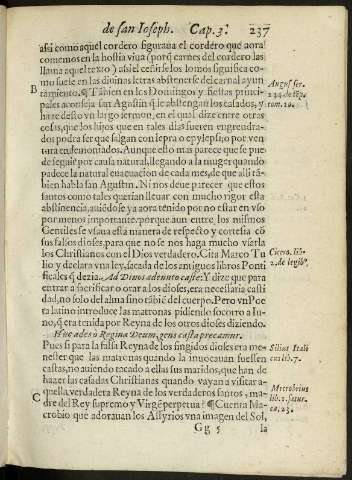 de san Ioseph. Cap. 3. 237
assi como aquel cordero figuraua el cordero que aora
comemos en la hostia viua (porq̃ carnes del cordero las
llama aquel texto) assi el ceñirse los lomos significa co-
mo suele en las diuinas letras abstenerse del carnal ayun
tamiento. ¶ Tãbien en los Domingos y fiestas princi-
pales aconseja san Agustin q̃ se abstengan los casados, y
haze desto vn largo sermon, en el qual dize entre otras
cosas, que los hijos que en tales dias fueren engendra-
dos podra ser que salgan con lepra o epylepsi, o por ven
tura endemoniados. Aunque esto mas parece que se pue
de seguir por causa natural, llegando a la muger quando
padece la natural euacuacion de cada mes, de que alli tã-
bien habla san Agustin. Ni nos deue parecer que estos
santos como tales querian lleuar con mucho rigor esta
abstinencia, auiẽdose ya aora tenido por no estar en vso
por menos importante. porque aun entre los mismos
Gentiles se vsaua esta manera de respecto y cortesia cõ
sus falsos dioses, para que no se nos haga mucho vsarla
los Christianos con el Dios verdadero. Cita Marco Tu
lio y declara vna ley, sacada de los antiguos libros Ponti
ficales q̃ dezia. Ad Diuos adeunto caste: Y dize que para
entrar a sacrificar o orar a los dioses, era necessaria casti
dad, no solo del alma sino tãbiẽ del cuerpo. Pero vn Poe
ta latino introduce las matronas pidiendo socorro a Iu-
no, q̃ era tenida por Reyna de los otros dioses diziendo.
Hue ades ò Regina Deum, gens casta precamur.
Pues si para la falsa Reyna de los fingidos dioses era me-
nester que las matronas quando la inuocauan fuessen
castas, no auiendo tocado a ellas sus maridos, que han de
hazer las casadas Christianas quando vayan a visitar a-
quella verdadera Reyna de los verdaderos santos, ma-
dre del Rey supremo y Virgẽ perpetua? ¶ Cuenta Ma-
crobio que adorauan los Assyrios vna imagen del Sol,
Gg 5 la
B
Augus. ser.
244. de tẽpo.
tom. 10.
Cicero. lib.
2. de legibº.
Silius Itali
cus li. 7.
Macrobius
lib. 1. satur.
ca. 23.
C